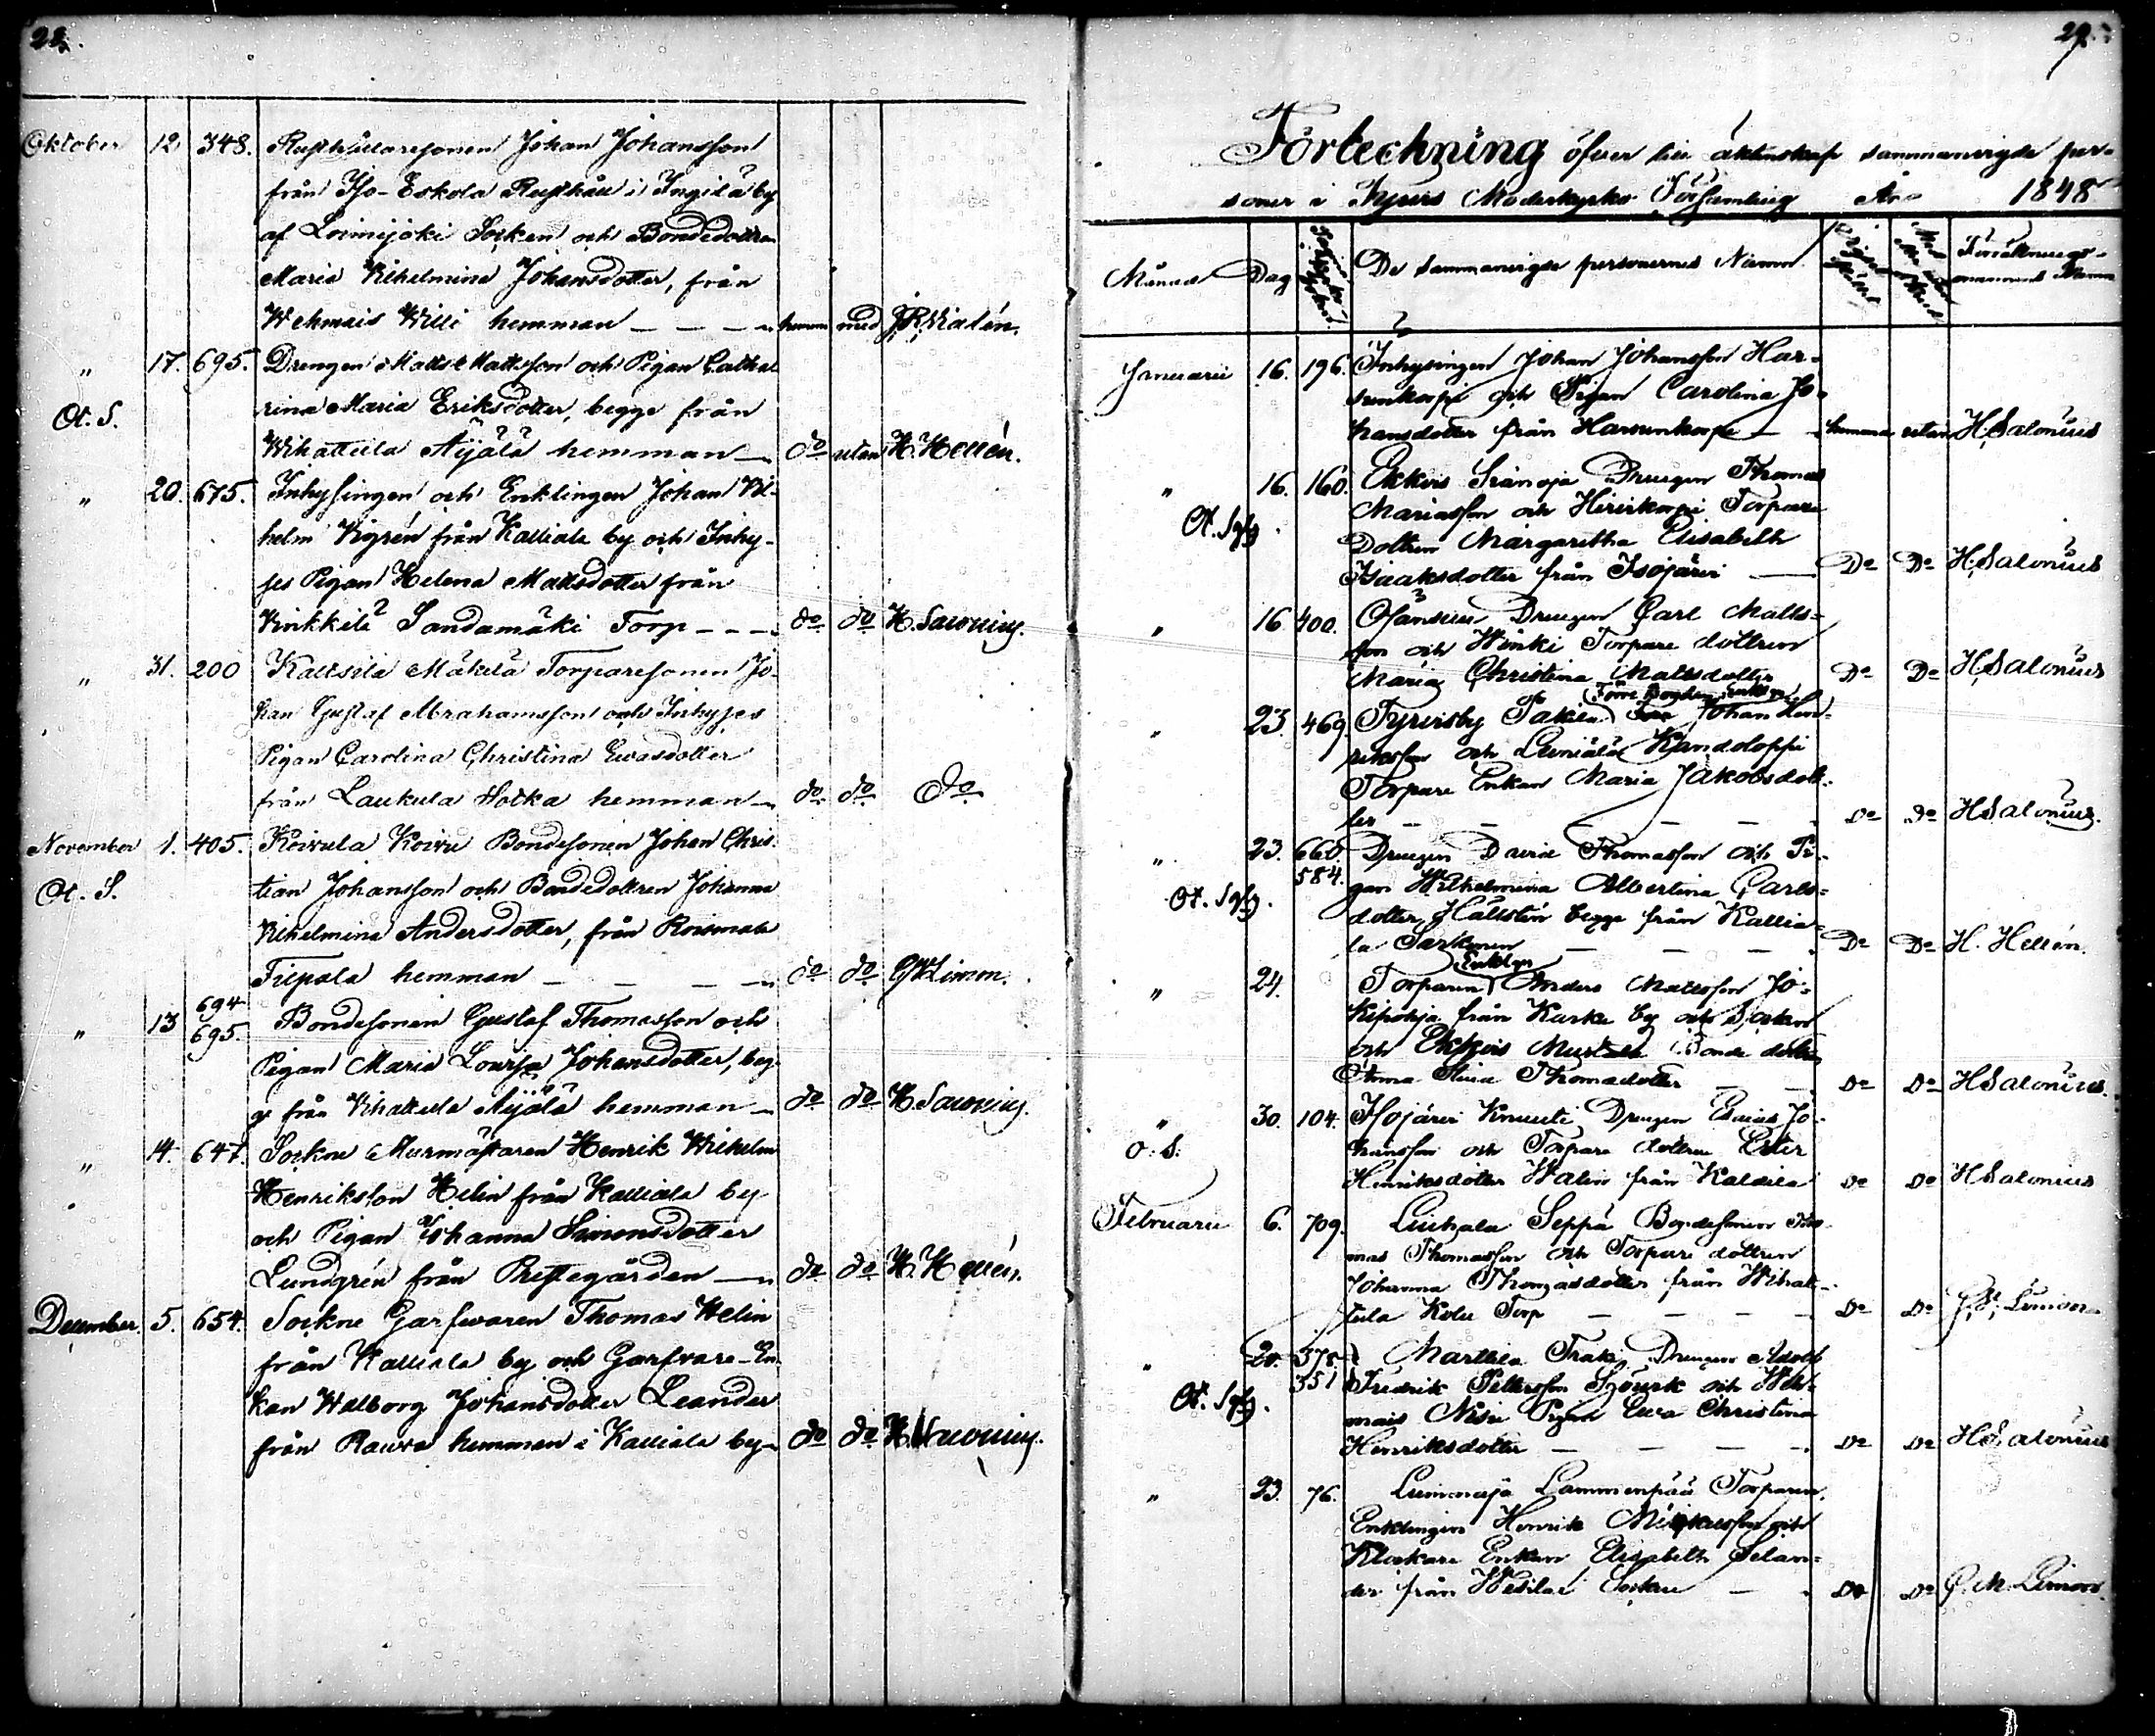 28.
Oktober 12 348. Rusthållaresonen Johan Johansson
från Iso-Eskola Rusthåll i Ingilä by
af Loimijoki Socken och Bondedottren
Maria Vilhelmina Johansdotter, från
Wehmais Willi hemman — hemma med
" 17. 695. Drengen Matts Mattsson och Pigan Catha
Ot. S. rina Maria Eriksdotter, begge från
Wihattula Äijälä hemman — do utan H. Hellén.
" 20. 675. Inhysingen och Enklingen Johan Vil-
helm Vigrén från Kalliala by och Inhy-
ses Pigan Helena Mattsdotter från
Vinkkilä Sandamäki Torp — do do
" 31. 200 Kaltsila Mäkelä Torparesonen Jo-
han Gustaf Abrahamsson och Inhyses
Pigan Carolina Christina Evasdotter
från Laukula Hotka hemman — do do do
November 1. 405. Koivula Koivu Bondesonen Johan Chris-
Ot. S. tian Johansson och Bondedottren Johanna
Vilhelmina Andersdotter, från Roismala
Tiepola hemman — do do Limon.
" 13 694 695. Bondesonen Gustaf Thomasson och
Pigan Maria Lovisa Johansdotter, beg-
ge från Vihattula Äijälä hemman — do do
" 14. 647. Sockne Murmästaren Henrik Wilhelm
Henriksson Helin från Kalliala by
och Pigan Johanna Simonsdotter
Lundgrén från Prestegården — do do H. Hellén.
December. 5. 654. Sockne Garfvaren Thomas Velin
från Kalliala by och Garfvare-En-
kan Walborg Johansdotter Leander
från Rauva hemman i Kalliala by — do do
29.
Förteckning öfver till äktenskap sammanvigde per-
soner i Tyrvis Moderkyrko Församling År 1848
Månad Dag De sammanvigde personernes Namn
Januarii 16. 196. Inhysingen Johan Johansson Har-
sunkorpi och Pigan Carolina Jo-
hansdotter från Harsunkorpi — hemma utan H. Salonius
" 16. 160. Ekkois Drengen Thomas
Ot. Mariasson och Hirvikorpi Torpare
Dottren Margaretha Elisabeth
Isaaksdotter från Isojärvi — Do Do H. Salonius
" 16. 400. Drengen Carl Matts-
son och Torpare dottren
Maria Christina Mattsdotter Do Do H. Salonius
" 23. 469. Tyrvisby Johan Hen-
riksson och
Torpare Enkan Maria Jakobsdot-
ter — Do Do H. Salonius.
" 23. 660. 584. Drengen David Thomasson och Pi-
Ot. gan Wilhelmina Albertina Carls-
dotter Hällstén begge från Kallia-
la — Do Do H. Hellén.
" 24. Torparen Enklgn Anders Mattsson Jo-
kipohja från Karku by och Socken
och Ekkois Bonde dottren
Anna Stina Thomadotter — Do Do H. Salonius.
" 30. 104. Isojärvi Knuuti Drengen Esaias Jo-
O. S. hansson och Torpare dottren Ester
Henriksdotter Walin från Kaldila Do Do H. Salonius
Februarii 6. 709. Liuhala Seppä Bondesonen Tho-
mas Thomasson och Torpare dottren
Johanna Thomasdotter från Wihat-
tula Torp — Do Do
" 20. 378. 351 Marttila Drengen Adolf
Ot. Fredrik Pettersson och Weh-
mais Nisu Pigan Eva Christina
Henriksdotter — Do Do H. Salonius
" 23. 76. Lummaja Lammenpää Torparen,
Enklingen Henrik och
Klockare Enkan Elisabeth Selan-
der från Socken — Do Do